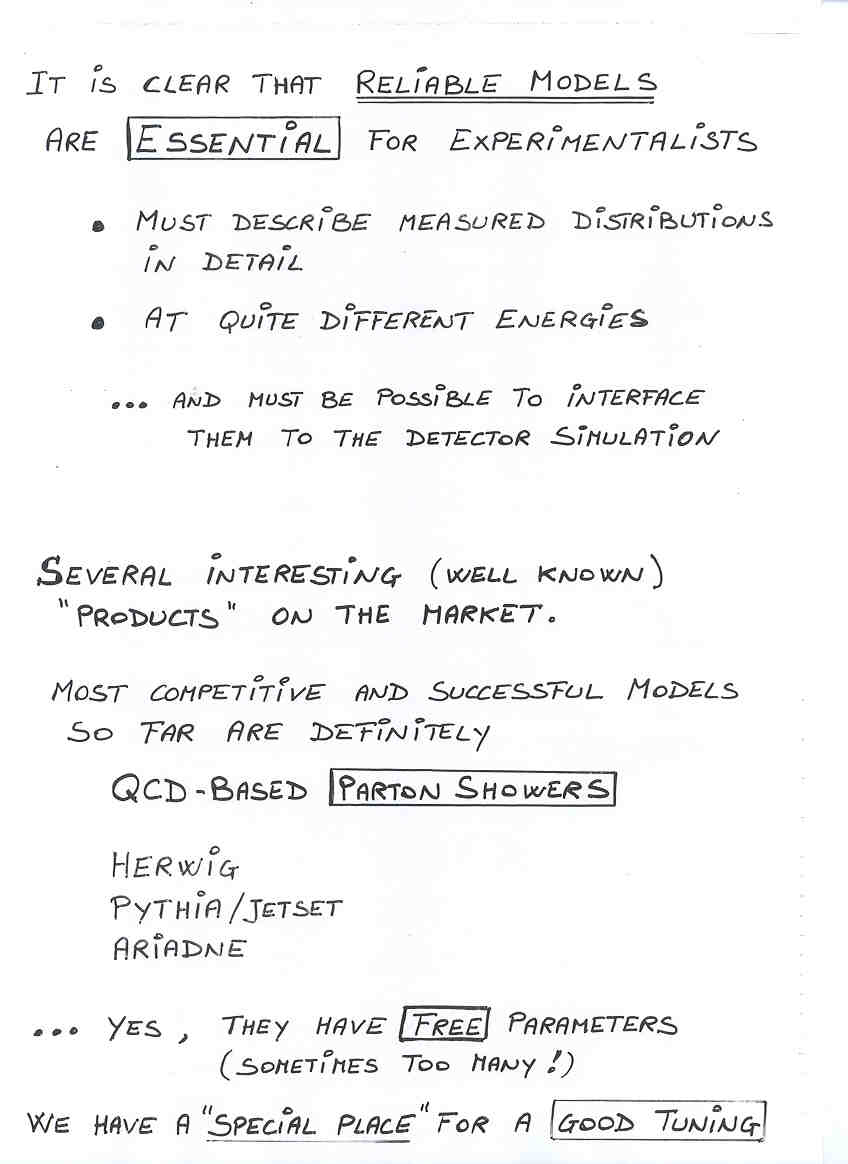 IT iS CLEAR THAT RELiABLE MODELS
ARE ESSENTiAL FOR EXPERiMENTALiSTS
• MUST DESCRiBE MEASURED DiSTRiBUTiONS
iN DETAiL
• AT QUiTE DiFFERENT ENERGiES
... AND MUST BE POSSiBLE TO iNTERFACE
THEM TO THE DETECTOR SiMULATiON
SEVERAL iNTERESTiNG (WELL KNOWN)
"PRODUCTS" ON THE MARKET.
MOST COMPETiTiVE AND SUCCESSFUL MODELS
SO FAR ARE DEFiNiTELY
QCD-BASED PARTON SHOWERS
HERWiG
PYTHiA/JETSET
ARiADNE
... YES, THEY HAVE FREE PARAMETERS
(SOMETiMES TOO MANY!)
WE HAVE A "SPECiAL PLACE" FOR A GOOD TUNiNG